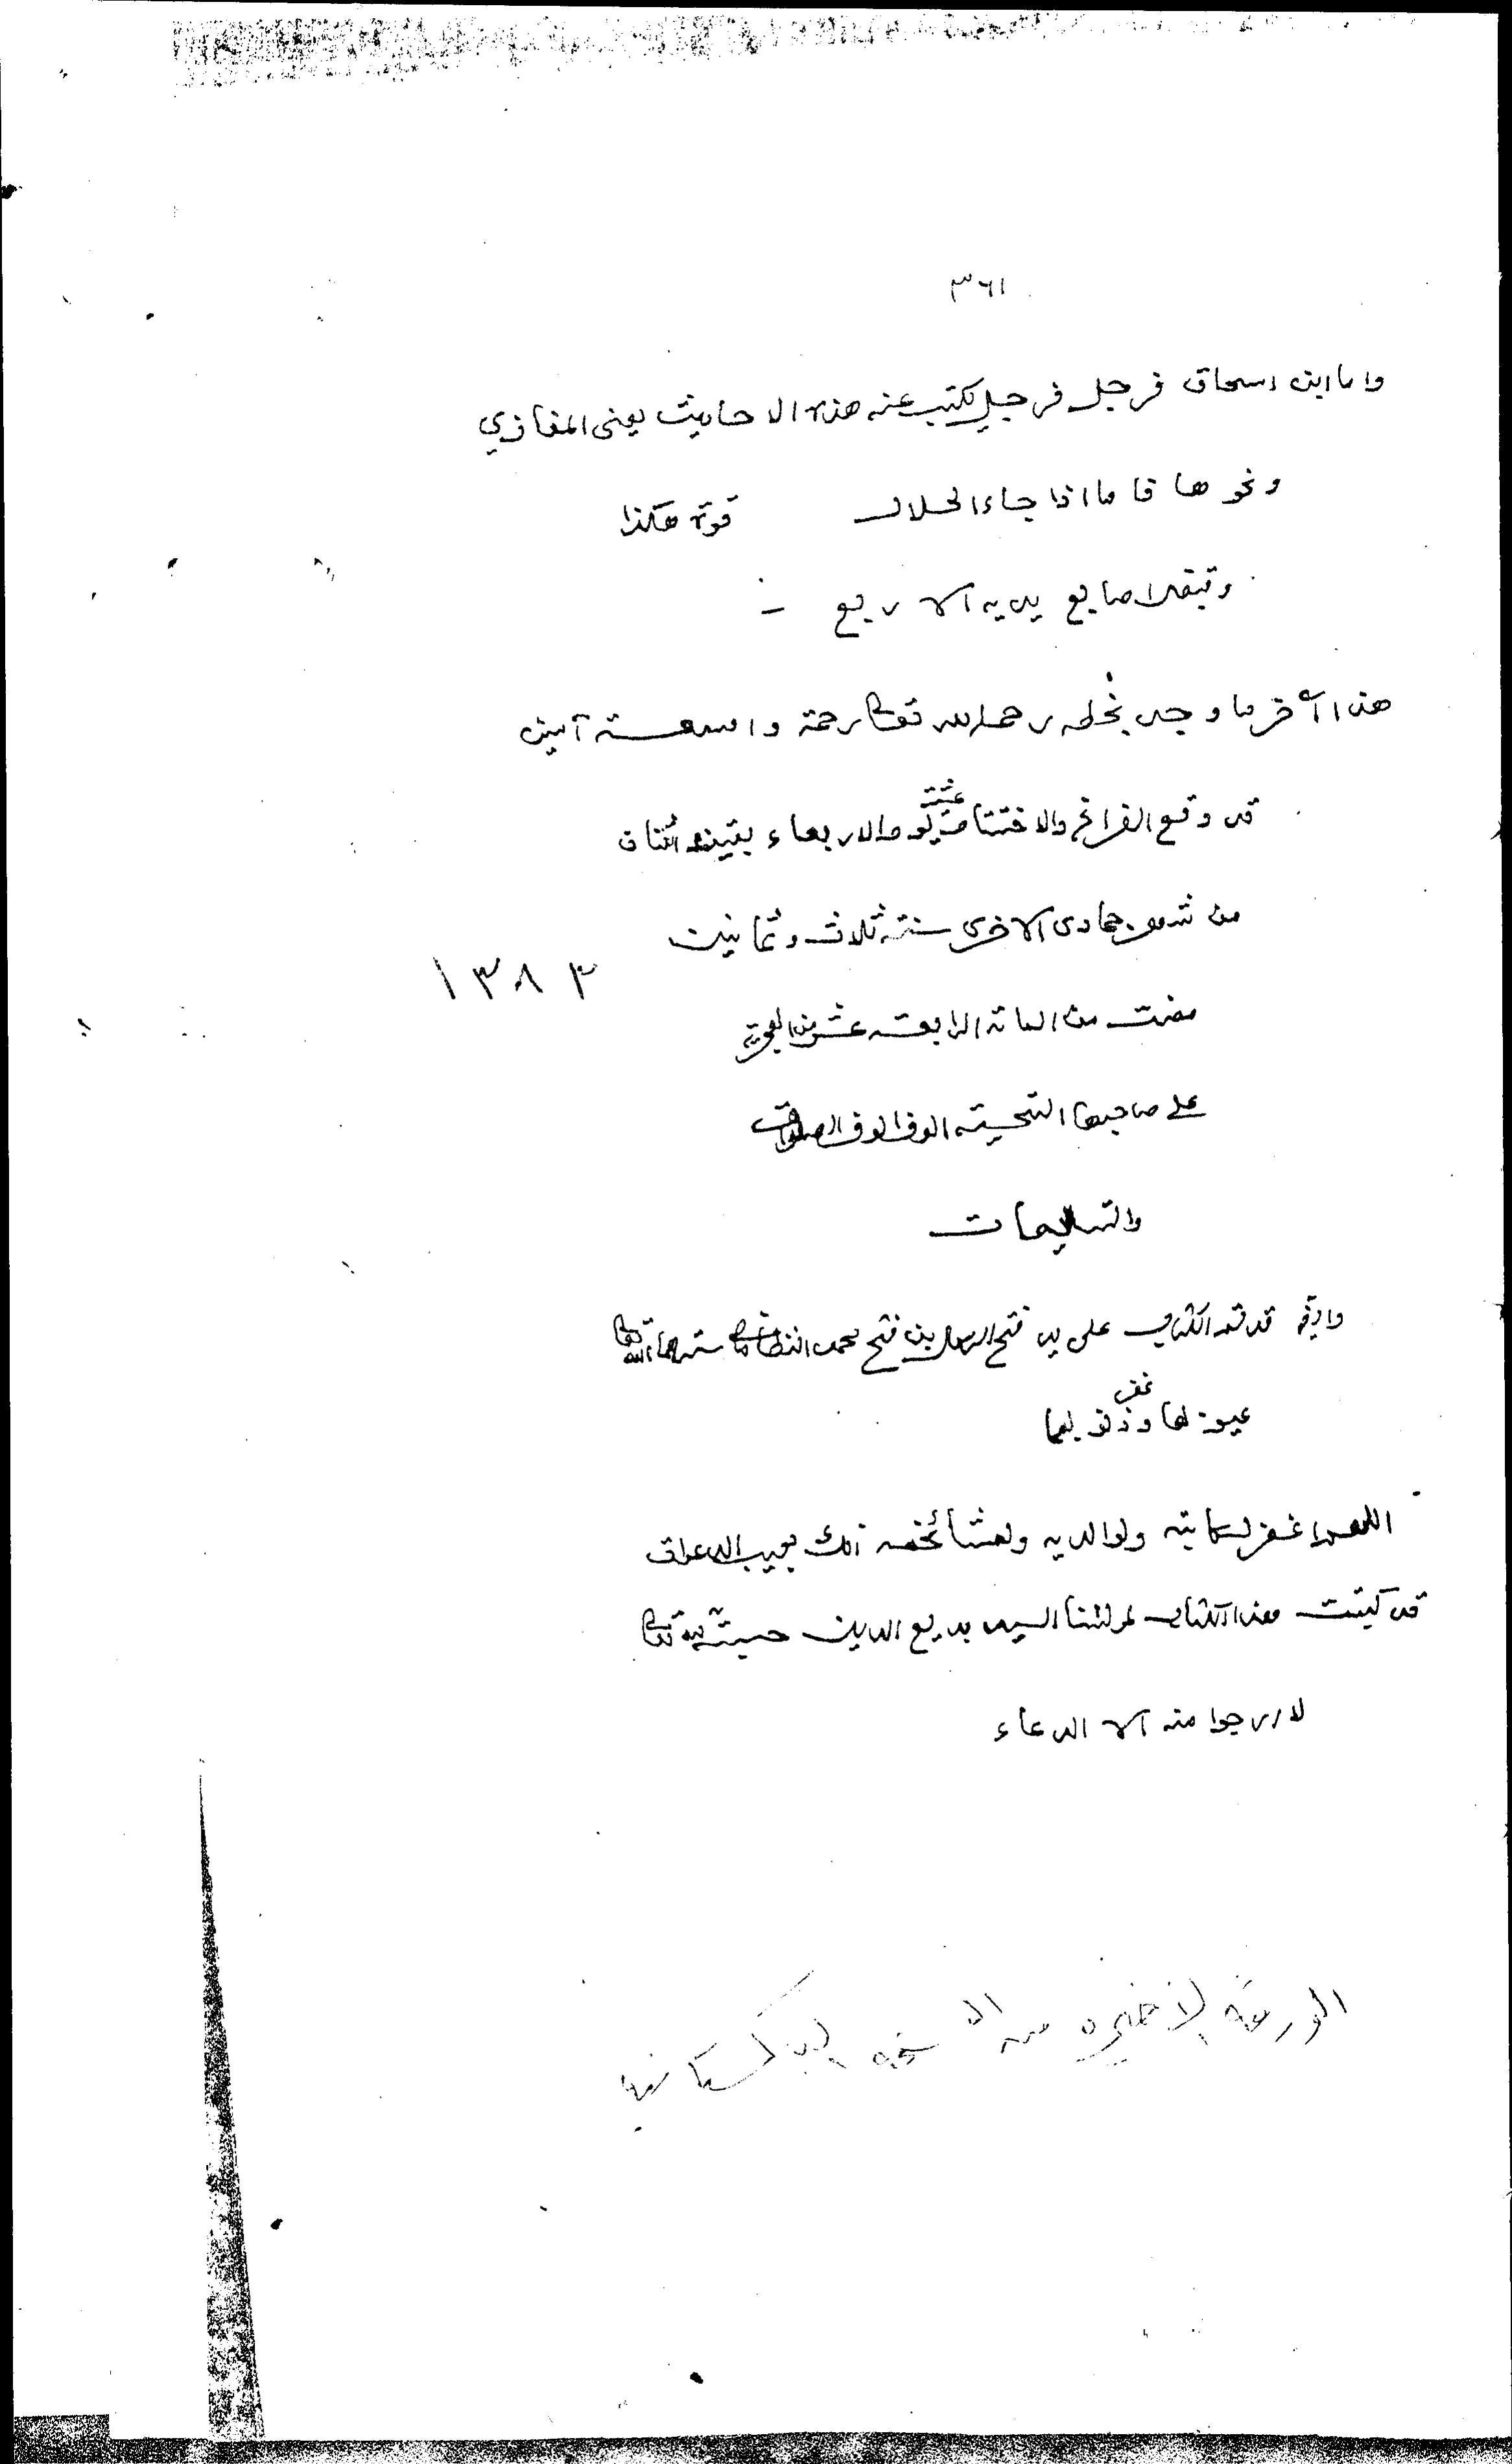 ٣٦١
واما ابن اسحاق فرجل فرجل يكتب عنه هذه الاحاديث يعنى المغازي
ونحوها فاما اذا جاء الحلال قوة هكذا
وقبض اصابع يديه الاربع -
هذا آخر ما وجد بخطه رحمه الله تعالى رحمة واسعة آمين
قد وقع الفراغ والاختتام عشية يوم الاربعاء بقين اثنان
من شهر جمادى الاخرى سنة ثلاث وثمانين
١٣٨٣
مضت من المائة الرابعة عشر من الهجرية
على صاحبها التحية الوف الوف الصلوات
والتسليمات
قد تم الكتاب على يد فتح الرسول بن فتح محمد النظاماني ستر هما الله تعالى
عيوبهما وغفر ذنوبهما
اللهم اغفر لكاتبه ولوالديه ولمشائخه انك مجيب الدعوات
قد كتبت هذا الكتاب لمرشدنا السيد بديع الدين حسبة لله تعالى
لا ارجوا منه الا الدعاء
الورقة الأخيرة من النسخة الباكستانية